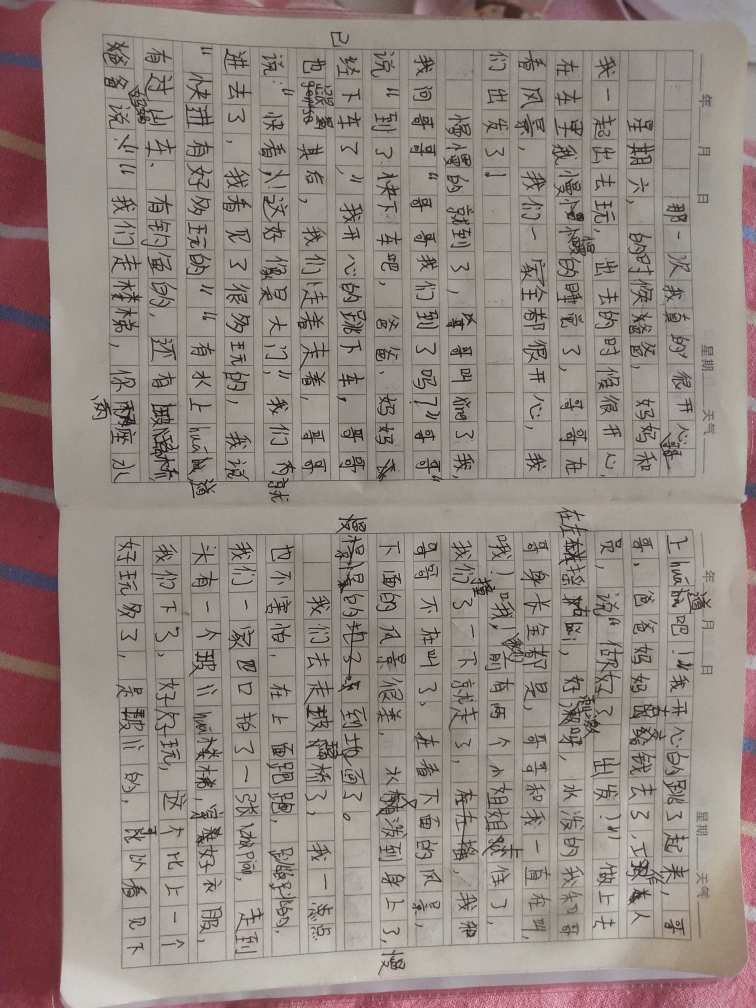 年 月 日 星期 天气
那一次我真的很开心
星期六，的时候爸爸，妈妈和
我一起出去玩，出去的时候很开心，
在车里我慢慢的睡觉了，哥哥在
看风景，我们一家全都很开心，我
们出发了！
慢慢的就到了，哥哥叫醒了我，
我问哥哥“哥哥我们到了吗？”哥哥
说“到了快下车吧，爸爸、妈妈已
经下车了，”我开心的跳下车，哥哥
也跟着其后，我们走着走着，哥哥
说：“快看，这好像是大门，”我们就
进去了，我看见了很多玩的，我说
“快进有好多玩的”“有水上huá道
有过山车，有钓鱼的，还有
爸爸说：“我们走楼梯，你两座水
年 月 日 星期 天气
上huá道吧！”我开心的跳了起来，哥
哥，爸爸妈妈给钱去了，工作人
员，说“做好了出发！”做上去
在左摇右晃，好刺激呀，水泼的我和哥
哥身长全都是，哥哥和我一直在叫，
哦！哦，前有两个小姐姐卡住了，
我们撞了一下就走了，我和
哥哥不在叫了，在看下面的风景，
下面的风景很美，水泼到身上了，慢
慢的到地面了。
我们去走玻li桥了，我一点点
也不害怕，在上面跑跑，跳跳，
我们一家四口拍了一张照piàn，走到
头有一个玻li huá梯，穿好衣服，
我们下了，好好玩，这个比上一个
好玩多了，是玻li的，可以看见下